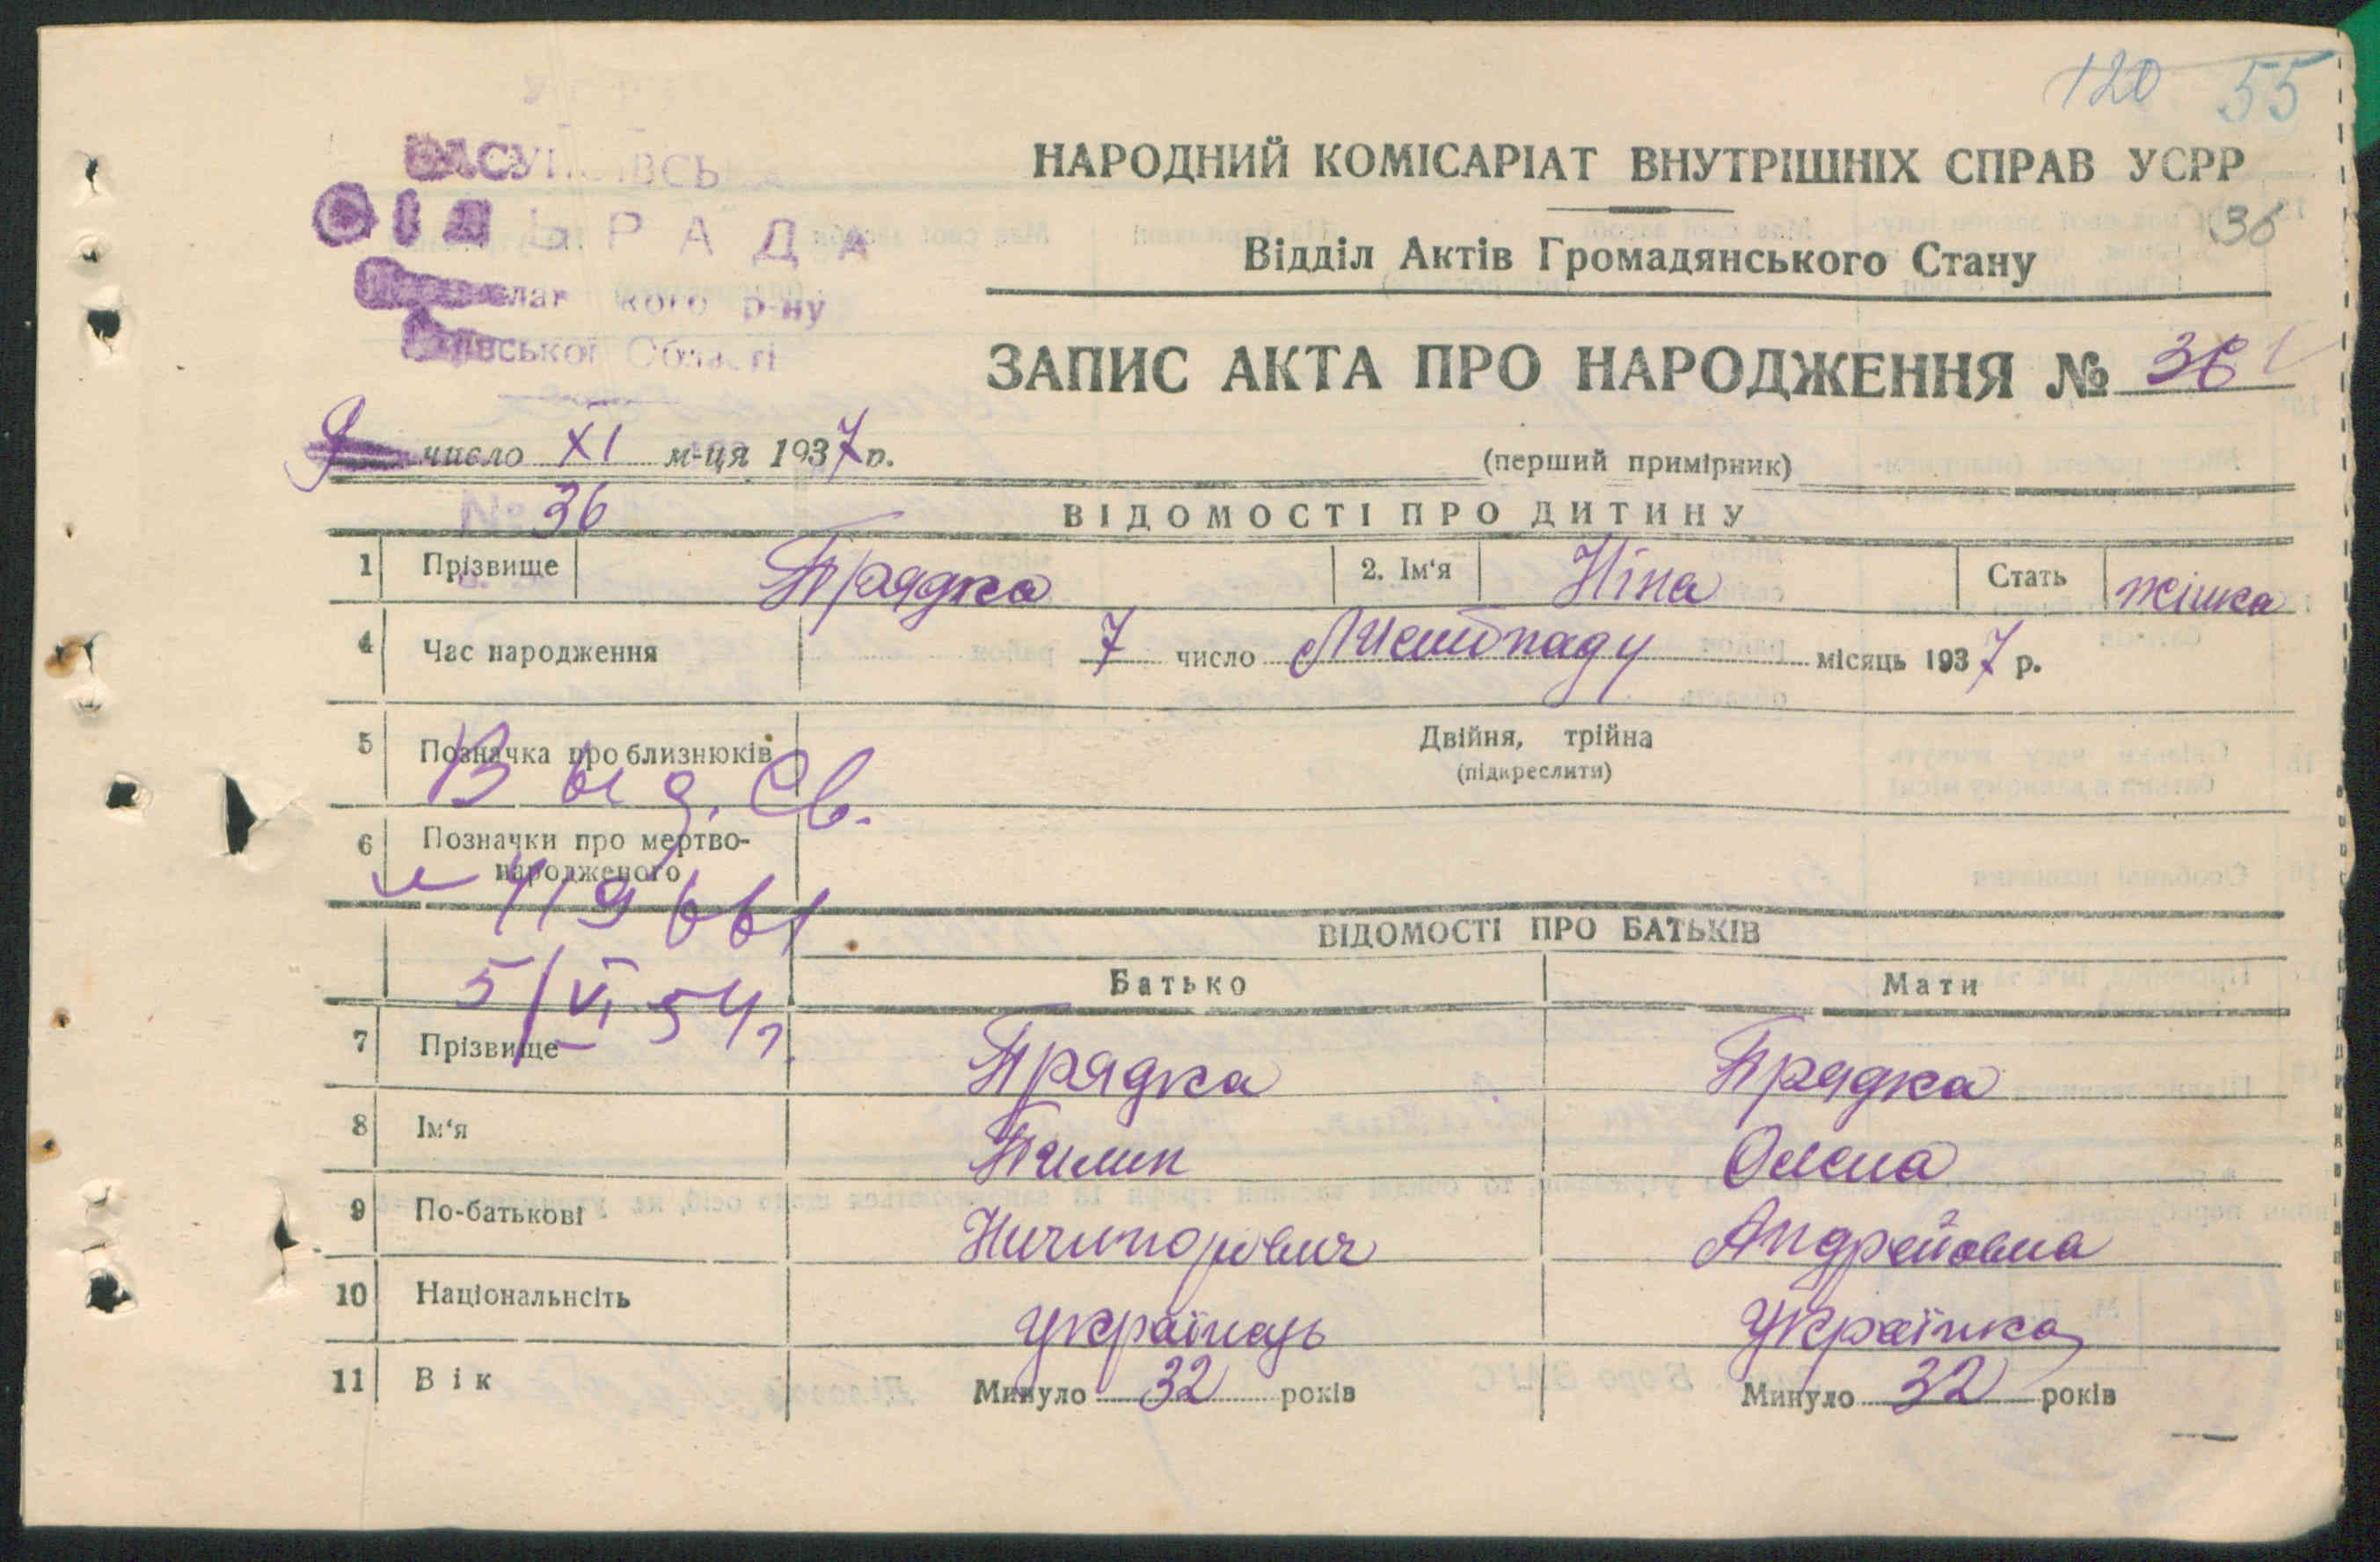 120 55
НАРОДНИЙ КОМІСАРІАТ ВНУТРІШНІХ СПРАВ УСРР
36
СІЛЬРАДА
Відділ Актів Громадянського Стану
р-ну
Області
ЗАПИС АКТА ПРО НАРОДЖЕННЯ № 36
9 число XI м-ця 1937 р.
(перший примірник)
№ 36
ВІДОМОСТІ ПРО ДИТИНУ
1 Прізвище Прядка 2. Ім'я Ніна Стать жінка
4 Час народження 7 число Листопаду місяць 1937 р.
5 Позначка про близнюків Двійня, трійна
(підкреслити)
Выд. Св.
6 Позначки про мертво-
народженого
419661
ВІДОМОСТІ ПРО БАТЬКІВ
5/VI 54 г.
Батько Мати
7 Прізвище Прядка Прядка
8 Ім'я Пилип Олена
9 По-батькові Ничипорович Андрейовна
10 Національнсіть українець Українка
11 Вік Минуло 32 років Минуло 32 років